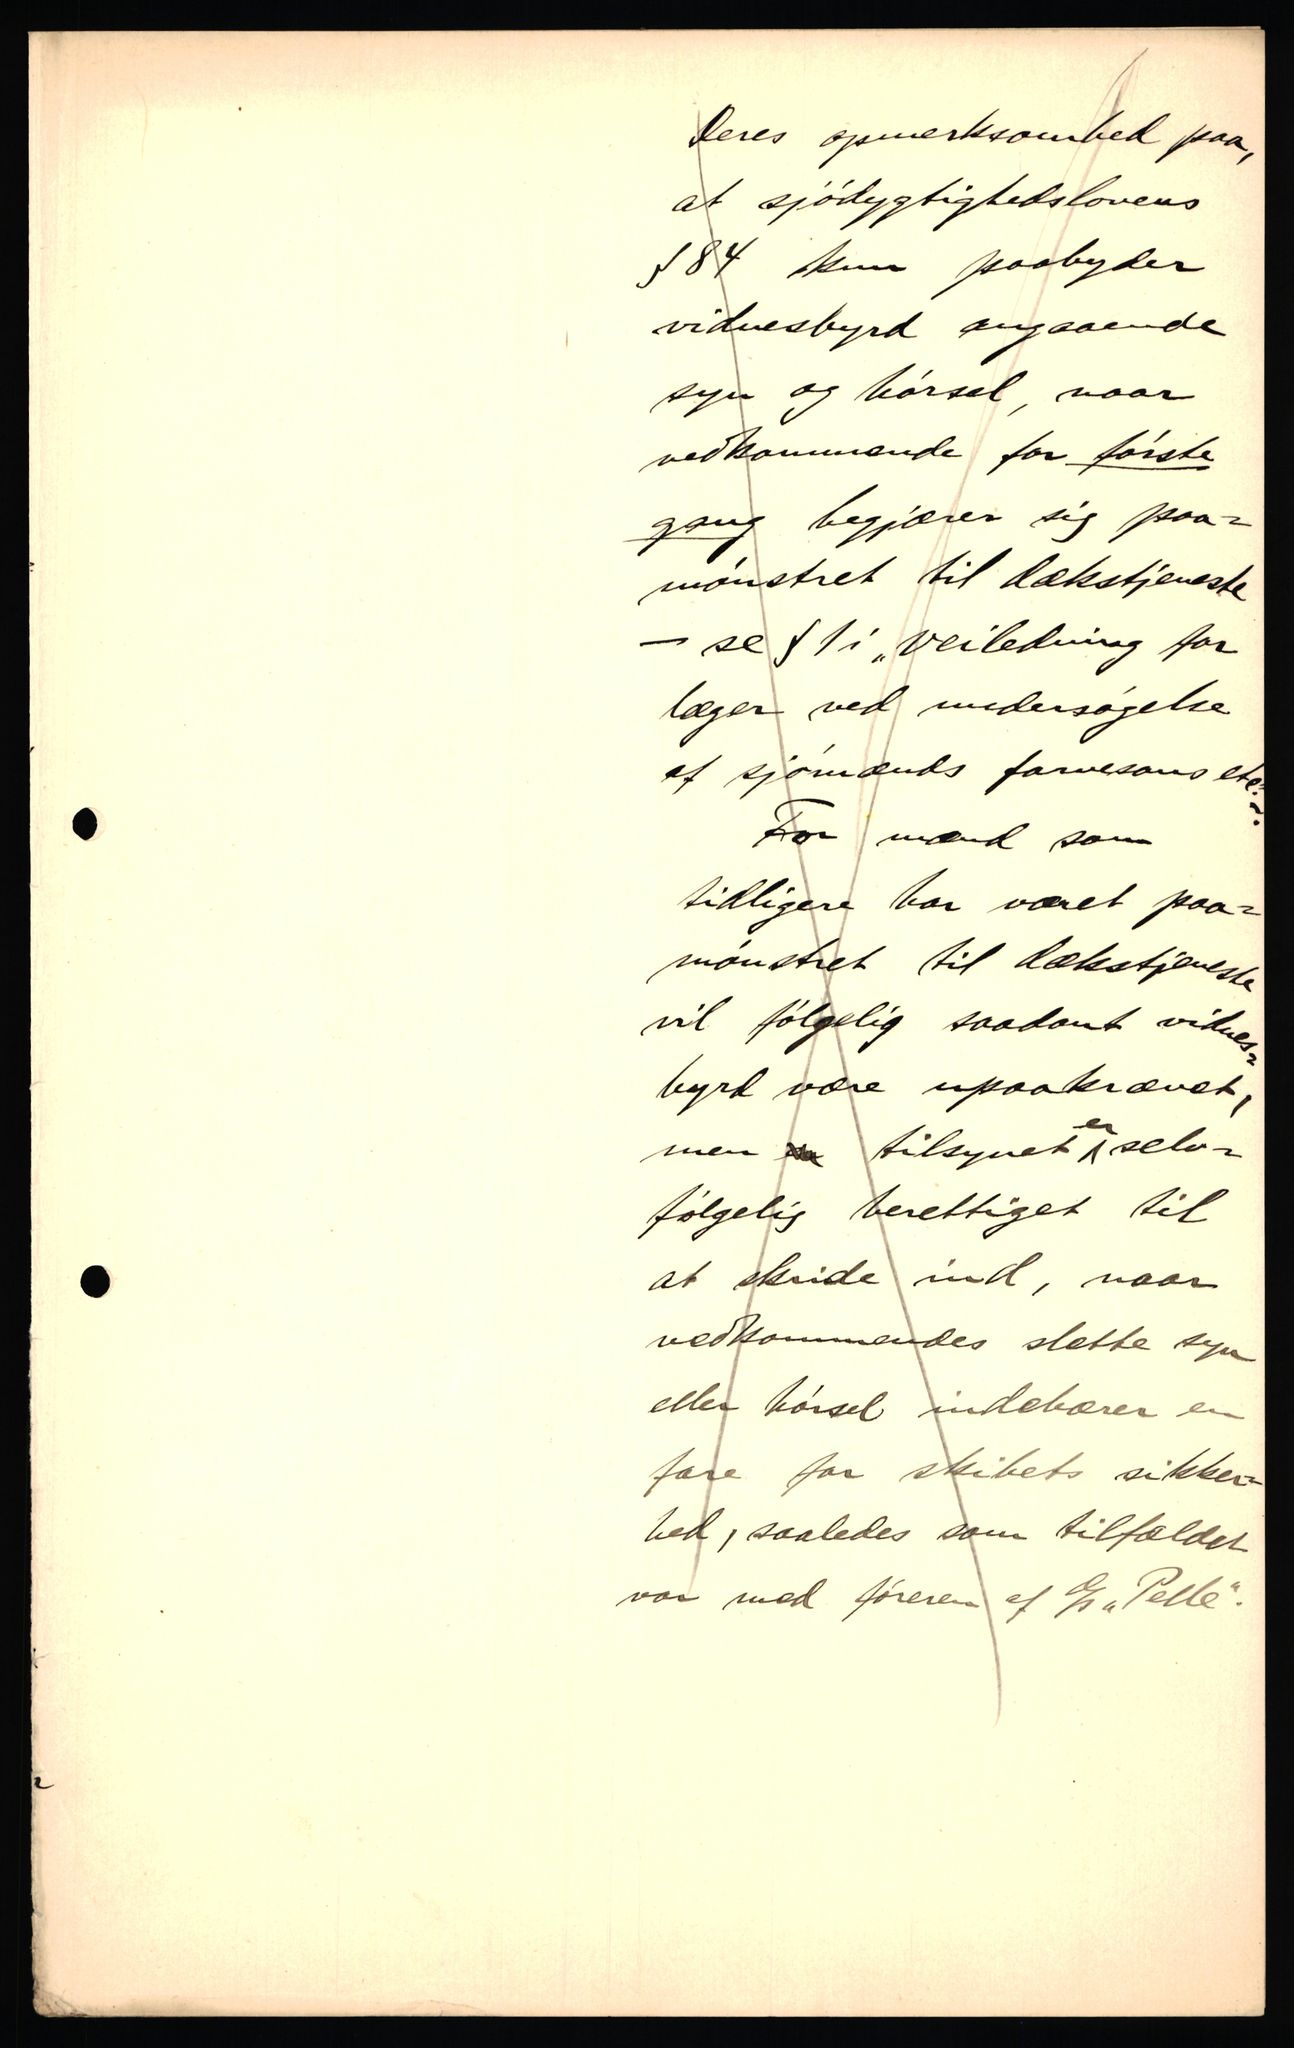 Deres opmerksomhed paa,
at sjödygtighedslovens
§ 84 kun paabyder
vidnesbyrd angaaende
syn og hörsel, naar
vedkommende for förste
gang begjærer sig paa-
mönstret til dækstjeneste
— se § 1 i „Veiledning for
læger ved undersögelse
af sjömænds farvesans etc.".
For mænd som
tidligere har været paa-
mönstret til dækstjeneste
vil fölgelig saadant vidnes-
byrd være upaakrævet,
men tilsynet er selv-
fölgelig berettiget til
at skride ind, naar
vedkommendes slette syn
eller hörsel indebærer en
fare for skibets sikker-
hed, saaledes som tilfældet
var med föreren af G/s „Pelle".